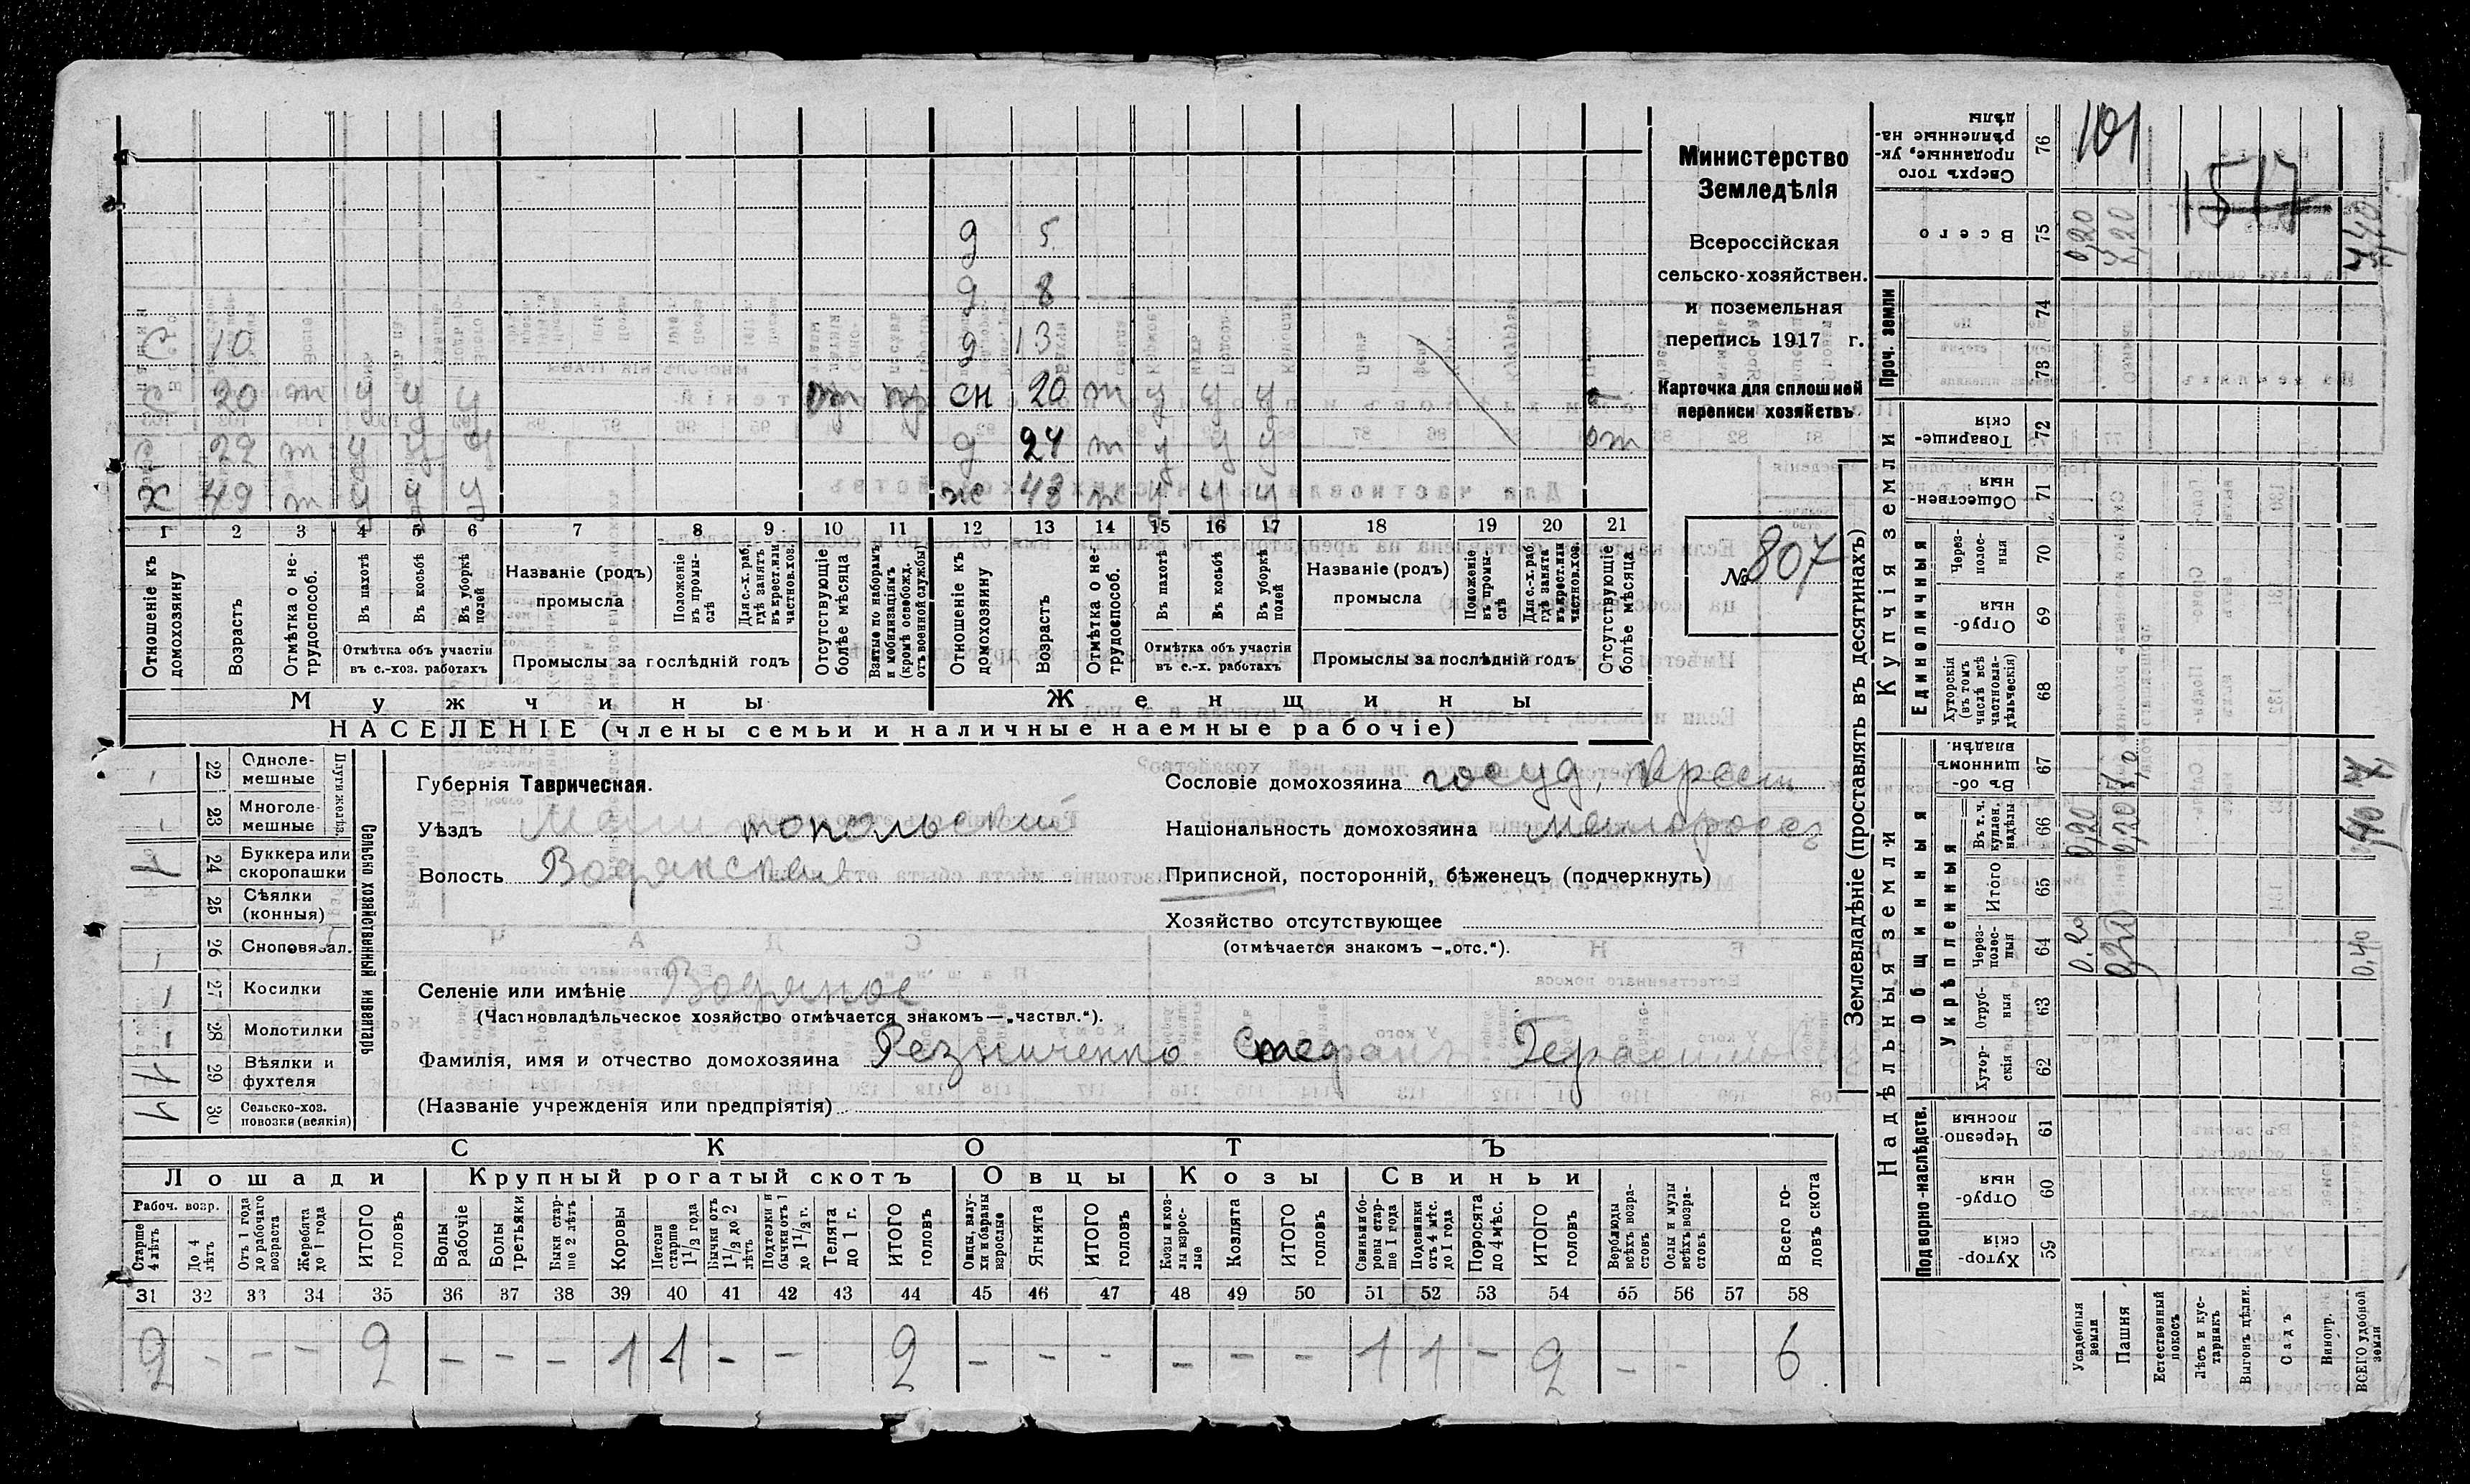 101
1517
Министерство
Земледѣлія
Всероссійская
сельско-хозяйствен.
и поземельная
перепись 1917 г.
Карточка для сплошной
переписи хозяйствъ
№ 807
д 5
д 8
С 10 д 13
С 20 т у у у сн 20 т у у у
С 22 т у у у д 24 т у у у от
х 49 т у у у ж 48 т у у у
1 2 3 4 5 6 7 8 9 10 11 12 13 14 15 16 17 18 19 20 21
Отношеніе къ домохозяину
Возрастъ
Отмѣтка о нетрудоспособ.
Въ пахотѣ
Въ косьбѣ
Въ уборкѣ полей
Отмѣтка объ участіи въ с.-хоз. работахъ
Названіе (родъ) промысла
Положеніе въ промыслѣ
Для с.-х. раб. гдѣ занятъ въ крест. или частнов. хоз.
Промыслы за послѣдній годъ
Отсутствующіе болѣе мѣсяца
Взятые по наборамъ и мобилизаціямъ (кромѣ освобожд. отъ военной службы)
Отношеніе къ домохозяину
Возрастъ
Отмѣтка о нетрудоспособ.
Въ пахотѣ
Въ косьбѣ
Въ уборкѣ полей
Отмѣтка объ участіи въ с.-х. работахъ
Названіе (родъ) промысла
Положеніе въ промыслѣ
Для с.-х. раб. гдѣ занята въ крест. или частнов. хоз.
Промыслы за послѣдній годъ
Отсутствующіе болѣе мѣсяца
Мужчины Женщины
НАСЕЛЕНІЕ (члены семьи и наличные наемные рабочіе)
Сельско хозяйственный инвентарь
22 Однолемешные
23 Многолемешные
24 Буккера или скоропашки 1
25 Сѣялки (конныя)
26 Сноповязал. -
27 Косилки -
28 Молотилки -
29 Вѣялки и фухтеля 1
30 Сельско-хоз. повозки (всякія) 1
Губернія Таврическая.
Уѣздъ Мелитопольский
Волость Водянская
Сословіе домохозяина госуд, Крест
Національность домохозяина Малоросс
Приписной, посторонній, бѣженецъ (подчеркнуть)
Хозяйство отсутствующее
(отмѣчается знакомъ —„отс.“).
Селеніе или имѣніе Водяное
(Частновладѣльческое хозяйство отмѣчается знакомъ—„частвл.“).
Фамилія, имя и отчество домохозяина Резниченко Стефанъ Герасим
(Названіе учрежденія или предпріятія)
СКОТЪ
Лошади Крупный рогатый скотъ Овцы Козы Свиньи
Рабоч. возр.
Старше 4 лѣтъ
До 4 лѣтъ
Отъ 1 года до рабочаго возраста
Жеребята до 1 года
ИТОГО головъ
Волы рабочіе
Волы третьяки
Быки старше 2 лѣтъ
Коровы
Нетели старше 1 1/2 года
Бычки отъ 1 1/2 до 2 лѣтъ
Подтелки и бычки отъ 1 до 1 1/2 г.
Телята до 1 г.
ИТОГО головъ
Овцы, валухи и бараны взрослые
Ягнята
ИТОГО головъ
Козы и козлы взрослые
Козлята
ИТОГО головъ
Свиньи и боровы старше 1 года
Подсвинки отъ 4 мѣс. до 1 года
Поросята до 4 мѣс.
ИТОГО головъ
Верблюды всѣхъ возрастовъ
Ослы и мулы всѣхъ возрастовъ
Всего головъ скота
31 32 33 34 35 36 37 38 39 40 41 42 43 44 45 46 47 48 49 50 51 52 53 54 55 56 57 58
2 - - - 2 - - - 1 1 - - 2 - - - - - - 1 1 - 2 - - 6
Землевладѣніе (проставлять въ десятинахъ)
Надѣльныя земли
Купчія земли
Проч. земли
Подворно-наслѣдств.
Общинныя
Укрѣпленныя
Единоличныя
Сверхъ того проданные, укрѣпленные надѣлы 76
Всего 75 0,20 4,20 4,40
74
73
Товарищескія 72
Общественныя 71
Черезполосныя 70
Отрубныя 69
Хуторскія (въ томъ числѣ всѣ частновладѣльческія) 68
Въ общинномъ владѣн. 67
Въ т. ч. куплен. надѣлы 66 0,20
Итого 65
Черезполосныя 64 0.20 0,40
Отрубныя 63
Хуторскія 62
Черезполосныя 61
Отрубныя 60
Хуторскія 59
Усадебныя земли
Пашня
Естественный покосъ
Лѣсъ и кустарникъ
Выгонъ цѣлин.
Садъ
Виногр.
ВСЕГО удобной земли